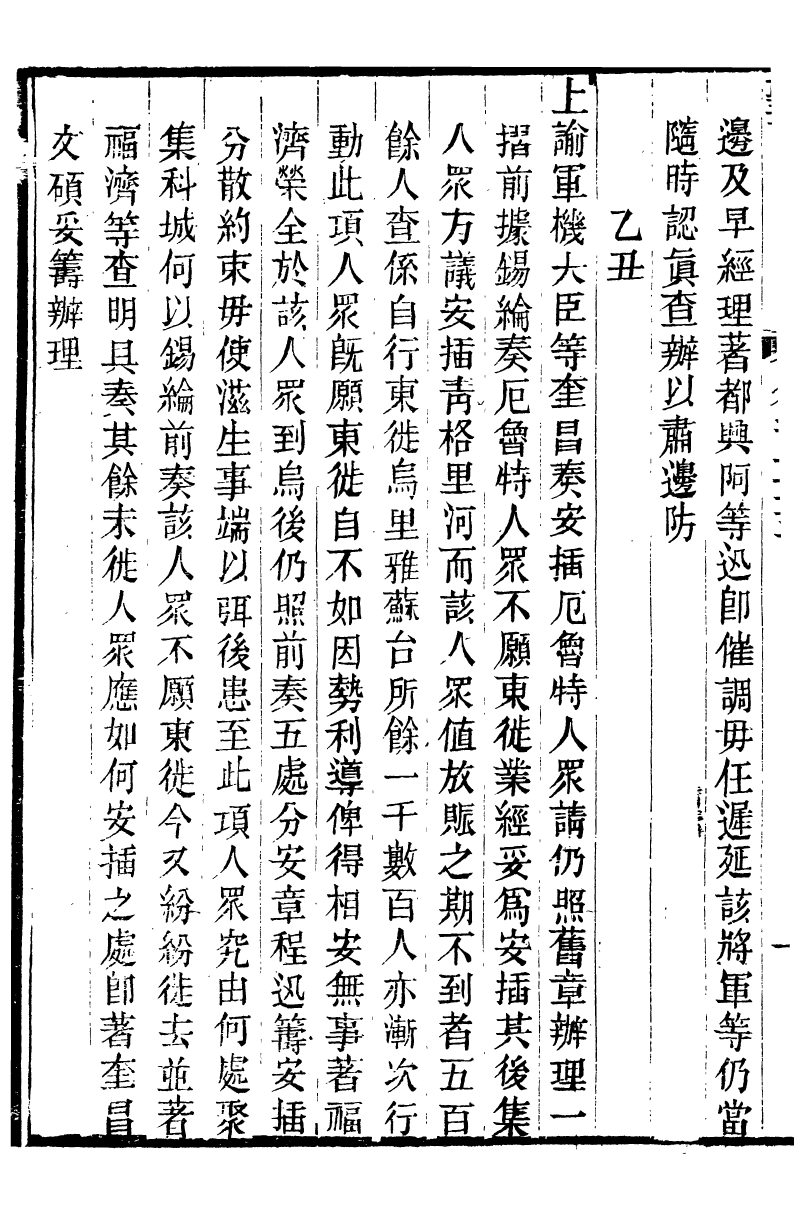 邊及早經理著都興阿等迅卽催調毋任遲延該將軍等仍當
隨時認眞查辦以肅邊防
乙丑
上諭軍機大臣等奎昌奏安插厄魯特人眾請仍照舊章辦理一
摺前據錫綸奏厄魯特人眾不願東徙業經妥爲安插其後集
人眾方議安插靑格里河而該人眾值放賑之期不到者五百
餘人查係自行東徙烏里雅蘇台所餘一千數百人亦漸次行
動此項人眾旣願東徙自不如因勢利導俾得相安無事著福
濟榮全於該人眾到烏後仍照前奏五處分安章程迅籌安插
分散約束毋使滋生事端以弭後患至此項人眾究由何處聚
集科城何以錫綸前奏該人眾不願東徙今又紛紛徙去並著
福濟等查明具奏其餘未徙人眾應如何安插之處卽著奎昌
文碩妥籌辦理
一